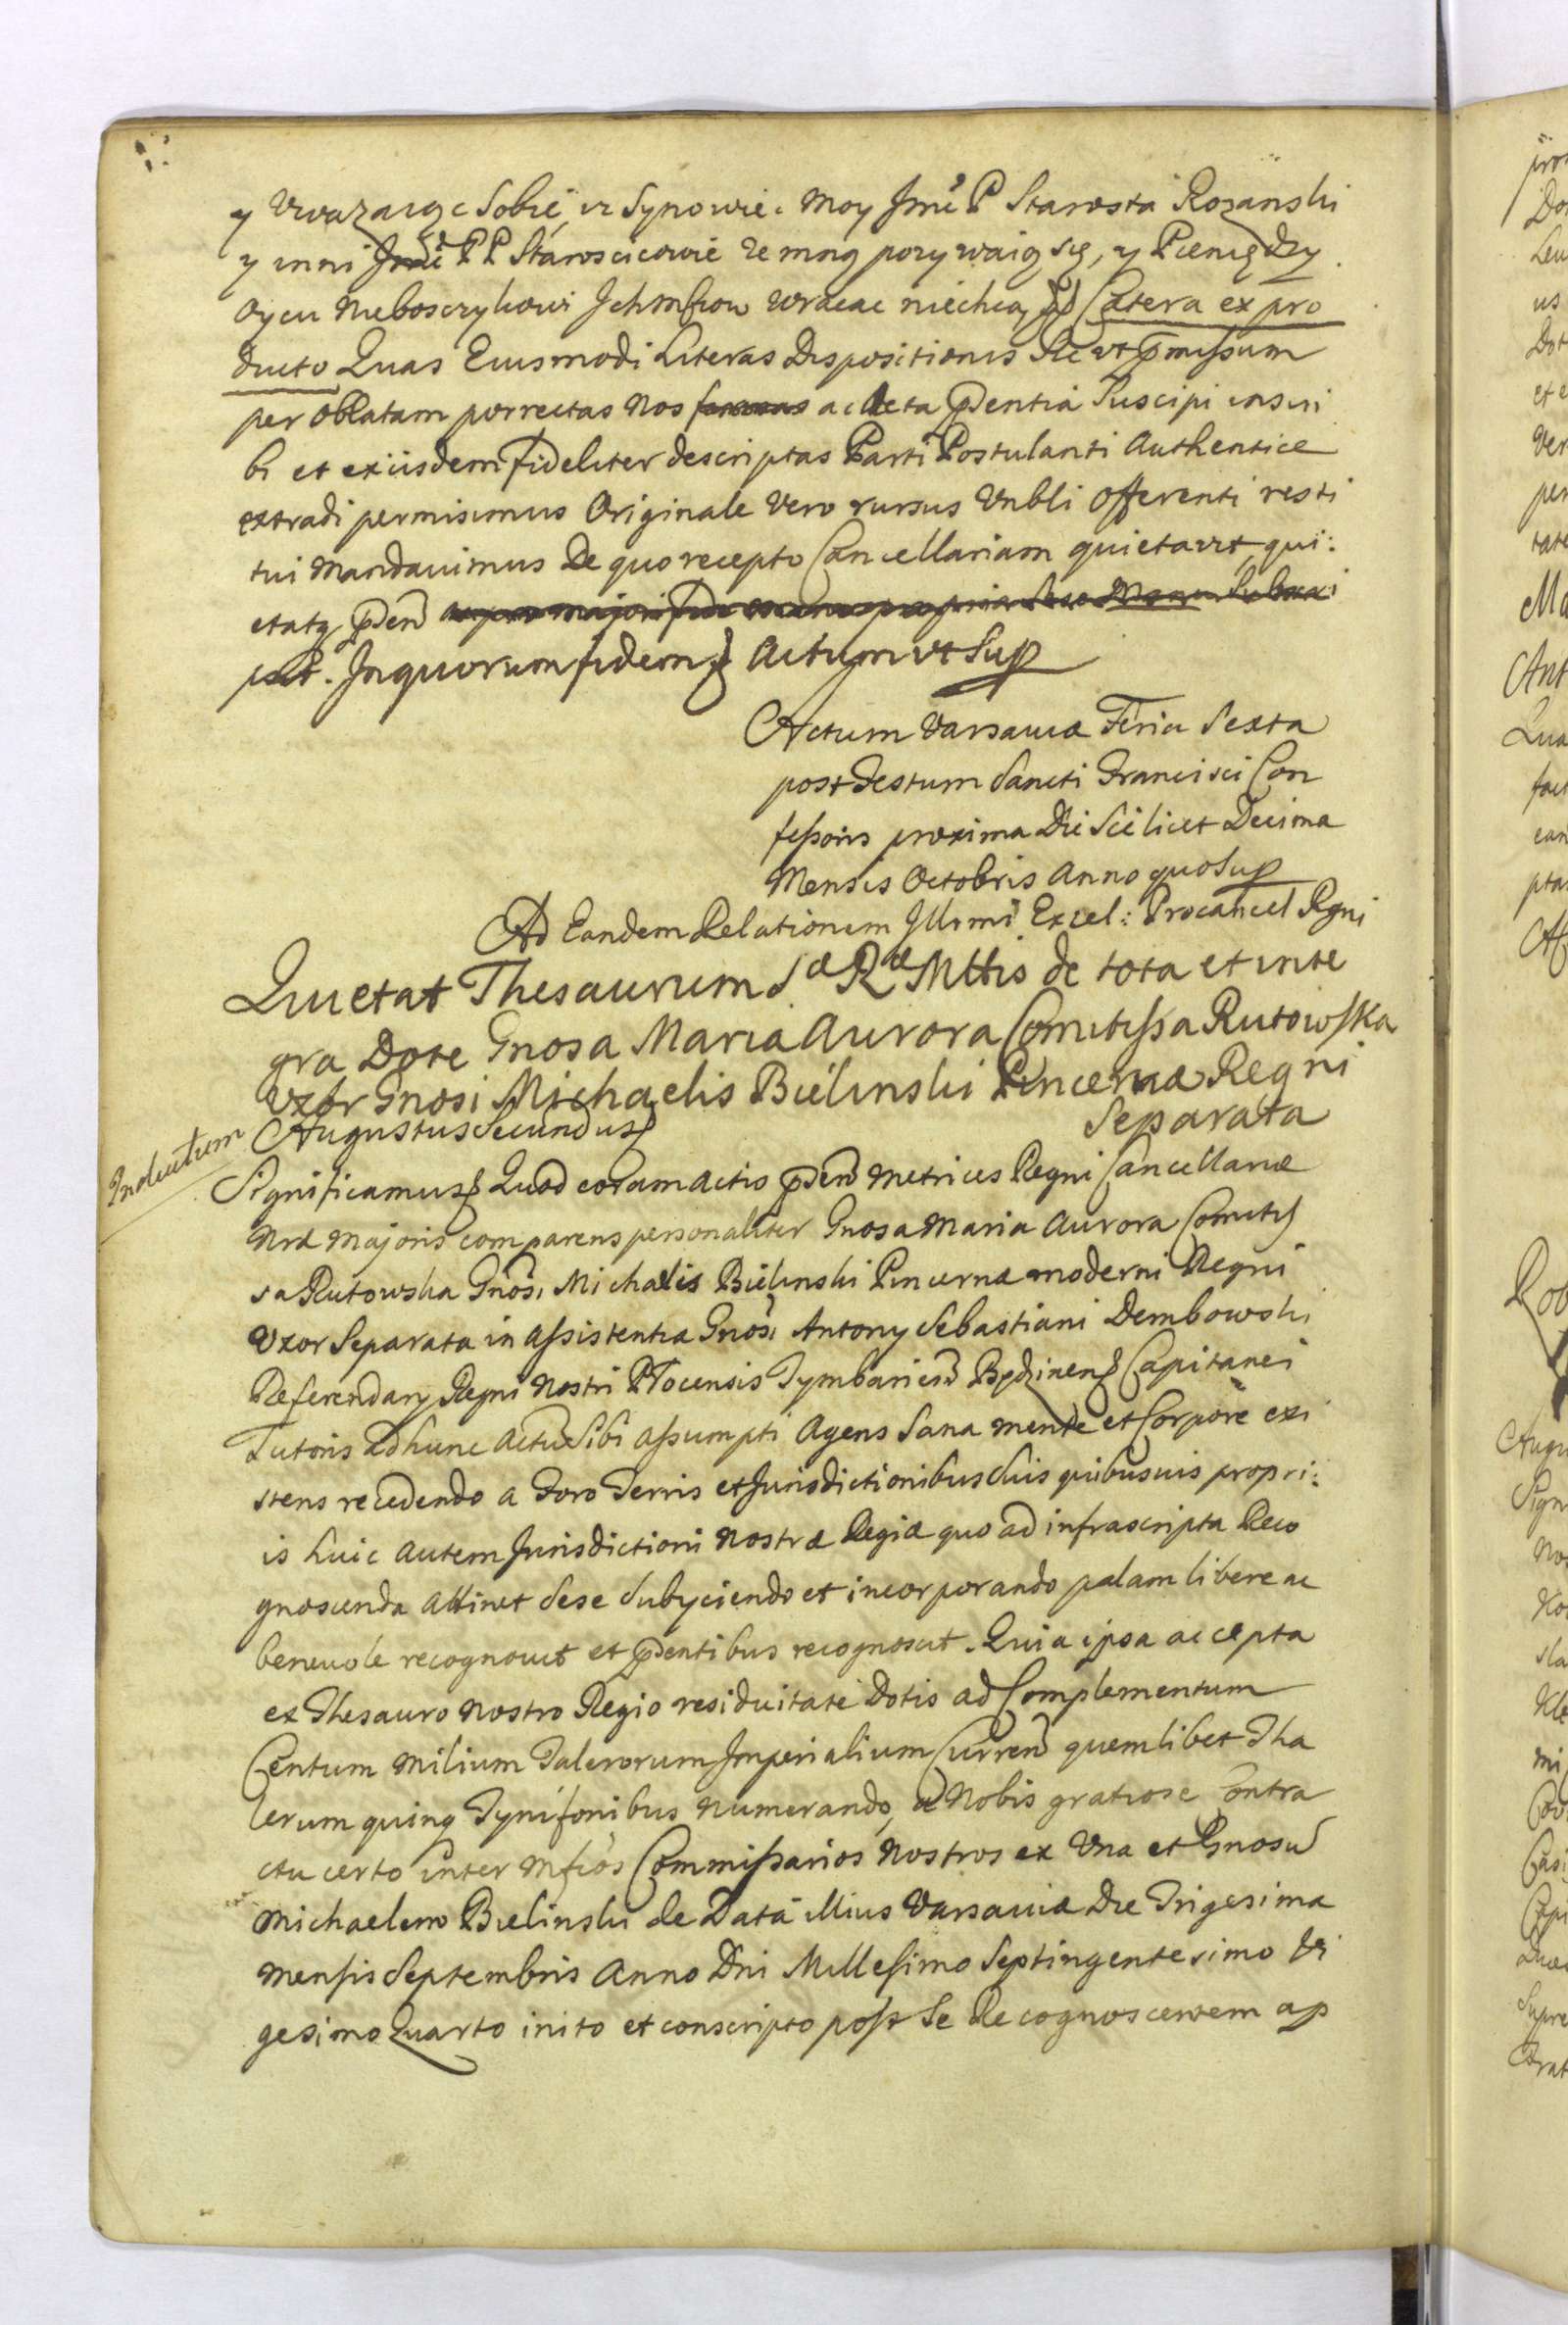 y Uwazaiąc Sobie, iz Synowie. Moy Jmć P Starosta Rozanski
y inni Jmć PP Staroscicowie ze mną pozywaią się, y Pieniędzy
Oycu Nieboszczykowi Ichmściow wracac niechcą, Cætera ex pro
ducto Quas Eiusmodi Literas Dispositionis Sic ut pmissum
per Oblatam porrectas Nos ac Acta pdentia Suscipi inscri
bi et ex iisdem fideliter descriptas Parti Postulanti Authentice
extradi permisimus Originale Vero rursus Vnbli Offerenti resti
tui Mandavimus De quo recepto Cancellariam quietavit, qui:
etatq pden
psit. In quorum fidem Actum ut Sup
Actum Varsaviæ Feria Sexta
post Festum Sancti Francisci Con
fessoris proxima Die Scilicet Decima
Mensis Octobris Anno quo Sup
Ad Eandem Relationem Illrmi Excel: Procancel Rgni
Quietat Thesaurum Sæ Ræ Mttis de tota et inte
gra Dote Gnosa Maria Aurora Comitissa Rutowska
Uxor Gnosi Michaelis Bielinski Pincernæ Regni
Separata
Inductum
Augustus Secundus
Significamus Quod coram Actis pden Metrices Regni Cancellariæ
Nræ Majoris comparens personaliter Gnosa Maria Aurora Comitis
sa Rutowska Gnosi Michaelis Bielinski Pincernæ moderni Regni
Uxor Separata in Assistentia Gnosi Antony Sebastiani Dembowski
Referendary Regni Nostri Płocensis Tymbaricen Będzinens Capitanei
Tutoris Adhunc Actu Sibi Assumpti Agens Sana mente et Corpore exi
stens recedendo a Foro Terris et Jurisdictionibus Suis quibusvis propri:
is huic autem Jurisdictioni Nostræ Regiæ quo ad infrascripta Reco
gnoscenda Attinet Sese Subyciendo et incorporando palam libere ac
benevole recognovit et pdentibus recognoscit. Quia ipsa accepta
ex Thesauro Nostro Regio residuitate Dotis ad Complementum
Centum Milium Talerorum Imperialium Curren quemlibet Tha
lerum quinq Tynfonibus numerando, a Nobis gratiose Contra
ctu certo inter Mfcos Commissarios Nostros ex Una et Gnosu
Michaelem Bielinski de Data illius Varsaviæ Die Trigesima
Mensis Septembris Anno Dni Millesimo Septingentesimo Vi
gesimo Quarto inito et conscripto post Se Recognoscentem ap